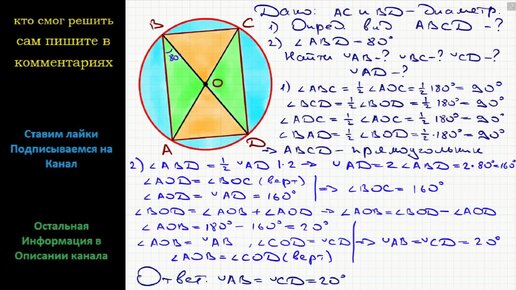 кто смог решить
сам пишите в
комментариях
Ставим лайки
Подписываемся на
Канал
Остальная
Информация в
Описании канала
B
C
80
O
A
D
Дано: AC и BD - диаметр.
1) Опред вид ABCD -?
2) ∠ABD - 80°
Найти ◡AB-? ◡BC-? ◡CD-?
◡AD-?
1) ∠ABC = ½ ∠AOC = ½ 180° = 90°
∠BCD = ½ ∠BOD = ½ 180° = 90°
∠ADC = ½ ∠AOC = ½ 180° = 90°
∠BAD = ½ ∠BOD = ½ · 180° = 90°
⇒ ABCD - прямоугольник
2) ∠ABD = ½ ◡AD | · 2 → ◡AD = 2 ∠ABD = 2 · 80° = 160°
∠AOD = ∠BOC (верт)
∠AOD = ◡AD = 160° ⇒ ∠BOC = 160°
∠BOD = ∠AOB + ∠AOD → ∠AOB = ∠BOD - ∠AOD
∠AOB = 180° - 160° = 20°
∠AOB = ◡AB, ∠COD = ◡CD ⇒ ◡AB = ◡CD = 20°
∠AOB = ∠COD (верт)
Ответ: ◡AB = ◡CD = 20°